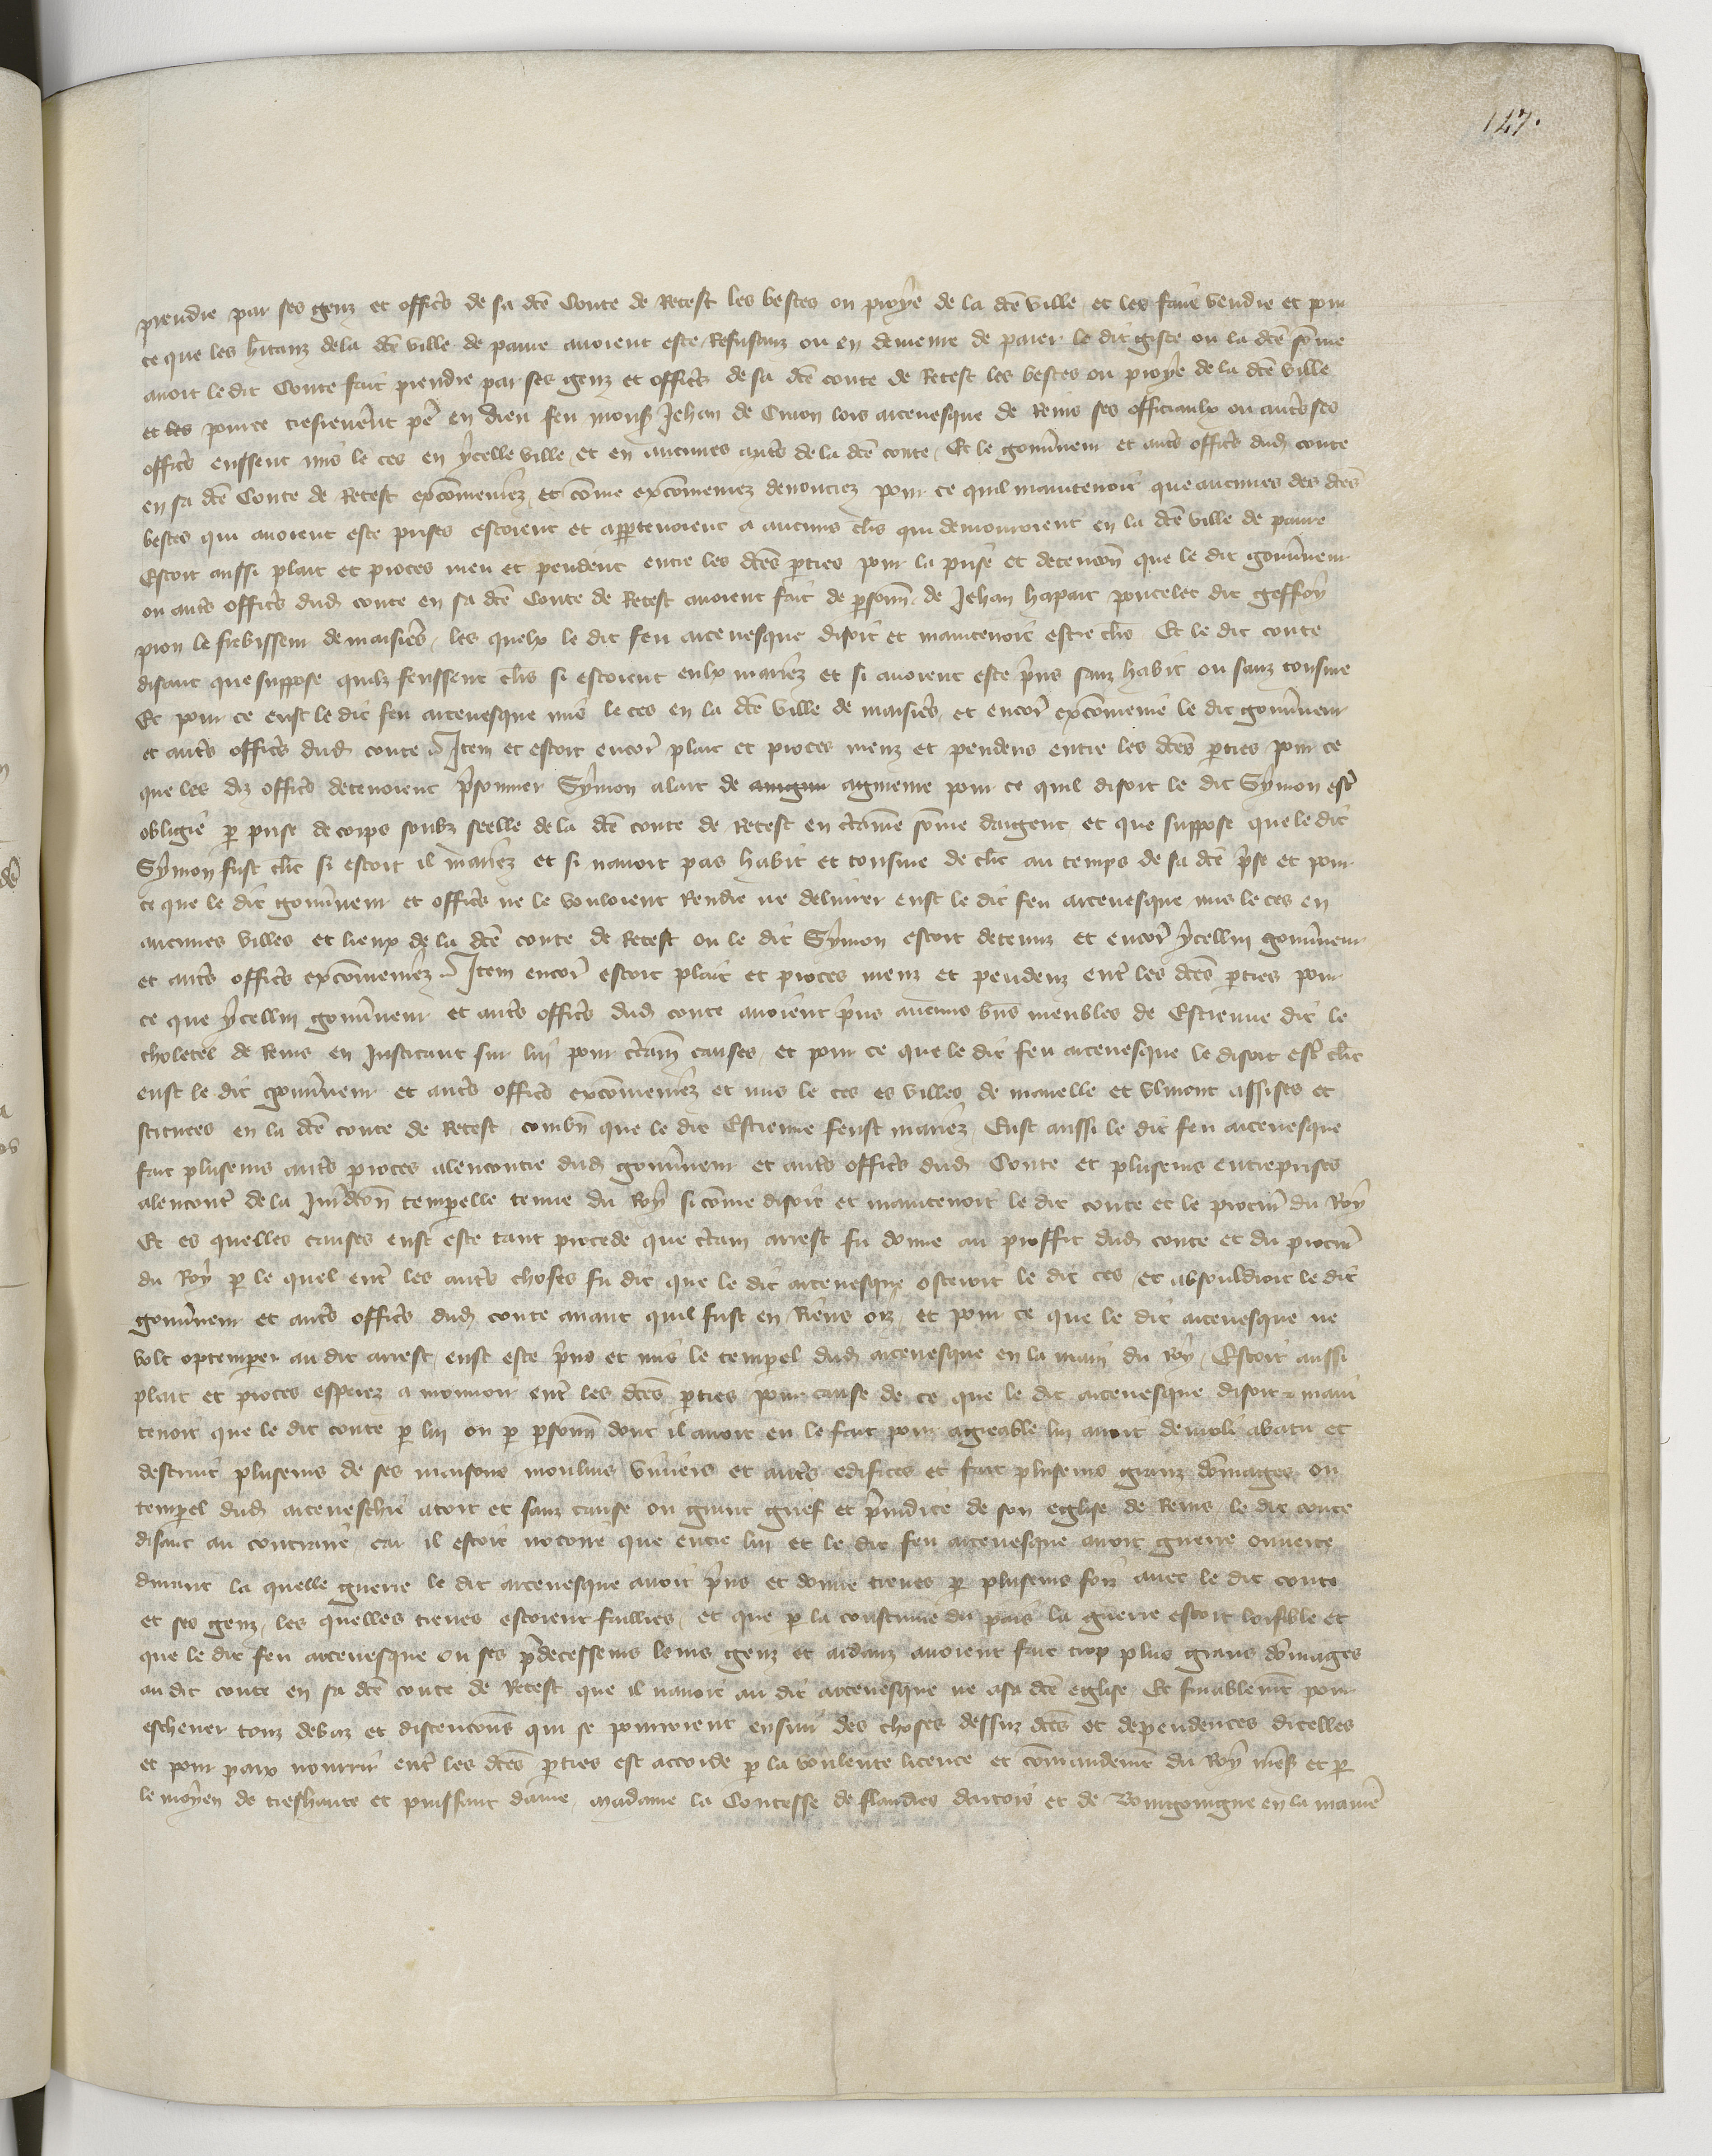 147.
prendre par ses genz et offics de sa dcẽ Conte de Retest les bestes ou proye de la dcẽ ville et les faire vendre et pour
ce que les hitanz dela dcẽ ville de paure avoient este Refusanz ou en demeure de paier le dit giste ou la dcẽ sõme
avoit le dit Conte fait prendre par ses genz et offics de sa dcẽ conte de Retest les bestes ou proye de la dcẽ ville
et pource tresreverẽt pẽ en dieu feu mons Jehan de Craon lors arcevesque de Reins ses officiaulx ou auts ses
offics eussent mis le ces en ycelle ville et en aucunes auts de la dcẽ conte Et le gouvneur et auts offics dud conte
en sa dcẽ Conte de Retest excõmeniez et cõme excõmeniez denonciez pour ce quil maintenoit que aucunes des dcẽs
bestes qui avoient este prises estoient et apptenoient a aucuns clrs qui demouroient en la dcẽ ville de paure
Estoit aussi plait et proces meu et pendẽt entre les dcẽs pties pour la prise et detencõn que le dit gouvneur
ou auts offics dud conte en sa dcẽ Conte de Retest avoient fait de psonñ de Jehan hapart poncelet dit geffroy
pion le fRbisseur de maisiers les quelx le dit feu arcevesque disoit et maintenoit estre clrs Et le dit conte
disant que suppose quilz feussent clrs si estoient eulx mariez et si avoient este pns sanz habit ou sanz tonsure
Et pour ce eust le dit feu arcevesque mis le ces en la dcẽ ville de maisiers et encor excõmenie le dit gouvneur
et auts offics dud conte Item et estoit encor plait et proces menz et pendens entre les dcẽs pties pour ce
que les dz offics detenoient psonnier Symon alart de aigmeme pour ce quil disoit le dit Symon estr
obligie p prise de corps soubz seelle de la dcẽ conte de Retest en ctaine sõme dargent et que suppose que le dit
Symon fust clrc si estoit il mariez et si navoit pas habit et tonsure de clrc au temps de sa dcẽ pse et pour
ce que le dit gouvneur et offics ne le vouloient Rendre ne delivrer eust le dit feu arcevesque mis le ces en
aucunes villes et lieux de la dcẽ conte de Retest ou le dit Symon estoit detenuz et encor ycellui gouvneur
et auts offics excõmeniez Item encor estoit plait et proces menz et pendenz entr les dcẽs pties pour
ce que ycellui gouvneur et auts offics dud conte avoient pns aucuns bñs meubles de Estienne dit le
choletel de Reins en Justicant sur lui pour ctaiñ causes et pour ce que le dit feu arcevesque le disoit estr clrc
eust le dit gouvneur et auts offics excõmeniez et mis le ces es villes de mavelle et vlmont assises et
scituees en la dcẽ conte de Retest combñ que le dit Estienne feust mariez Eust aussi le dit feu arcevesque
fait pluseurs auts proces alencontre dud gouvneur et auts offics dud Conte et pluseurs entreprises
alencontr de la Juridcõn temporelle tenue du Roy si cõme disoit et maintenoit le dit conte et le procur du Roy
Et es quelles causes eust este tant procede que ctain arrest fu donne au proffit dud conte et du procur
du Roy p le quel entr les auts choses fu dit que le dit arcevesque osteroit le dit ces et absouldroit le dit
gouvneur et auts offics dud conte avant quil fust en Riens oiz et pour ce que le dit arcevesque ne
volt optemperer au dit arrest eust este pns et mis le temporel dud arcevesque en la main du Roy Estoit aussi
plait et proces esperez a mouvoir entr les dcẽs pties pour cause de ce que le dit arcevesque disoit & main
tenoit que le dit conte p lui ou p psonñ dont il avoit eu le fait pour agreable lui avoit demoli abatu et
destruit pluseurs de ses maisons moulins viviers et auts edifices et fait pluseurs granz dõmages ou
temporel dud arceveschie a tort et sanz cause ou grant grief et pjudice de son eglise de Reins le dit conte
disant au contraire car il estoit notoire que entre lui et le dit feu arcevesque avoit guerre ouverte
durant la quelle guerre le dit arcevesque avoit pns et donne treues p pluseurs foiz avec le dit conte
et ses genz les quelles treues estoient faillies et que p la coustume du pais la guerre estoit loisible et
que le dit feu arcevesque ou ses pdecesseurs leurs genz et aidanz avoient fait trop plus grans dõmages
au dit conte en sa dcẽ conte de Retest que il navoit au dit arcevesque ne a sa dcẽ eglise Et finablemẽt pour
eschever touz debaz et discencions qui se pourroient ensuir des choses dessuz dcẽs et dependences dicelles
et pour paix nourrir entr les dcẽs pties est accorde p la voulente licence et cõmandemẽt du Roy mẽs et p
le moyen de treshaute et puissant dame madame la Contesse de flandres dartois et de Bourgoingne en la maniẽ